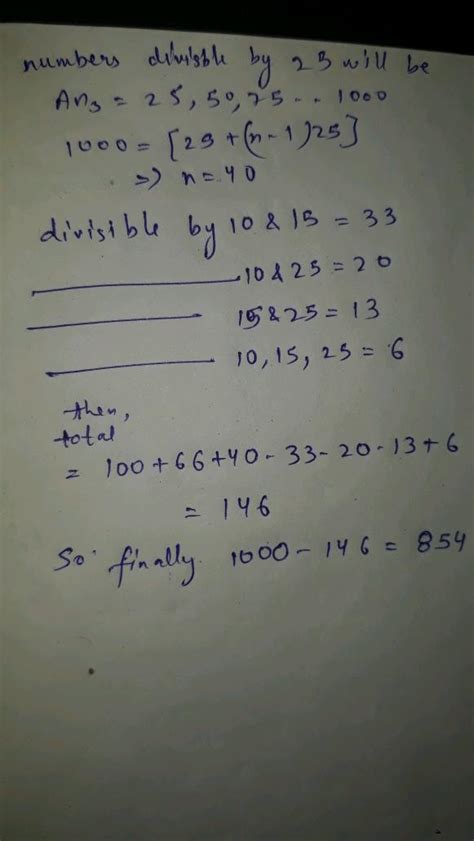 numbers divisble by 25 will be
An₃ = 25, 50, 75 .. 1000
1000 = [25 + (n-1)25]
=> n = 40
divisible by 10 & 15 = 33
10 & 25 = 20
15 & 25 = 13
10, 15, 25 = 6
then,
total
= 100 + 66 + 40 - 33 - 20 - 13 + 6
= 146
So finally 1000 - 146 = 854